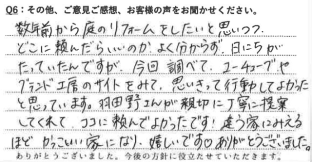 Q6：その他、ご意見ご感想、お客様の声をお聞かせください。
数年前から庭のリフォームをしたいと思いつつ、
どこに頼んだらいいのか よく分からず、日にちが
たっていたんですが、今回 調べて、ユーチューブや
ブランド工房のサイトをみて、思いきって行動してよかった
と思っています。羽田野さんが親切に丁寧に提案
してくれて、ココに頼んでよかったです！違う家にみえる
ほど かっこいい家になり、嬉しいです。ありがとうございました。
ありがとうございました。今後の方針に役立たせていただきます。